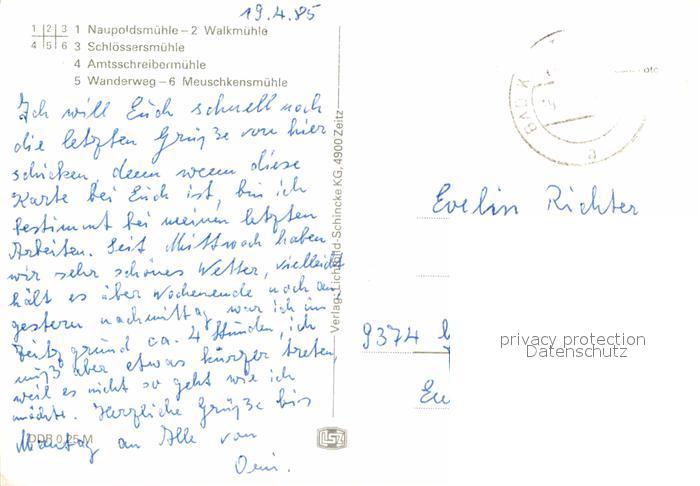 19.4.85
1 2 3 1 Naupoldsmühle – 2 Walkmühle
4 5 6 3 Schlössersmühle
4 Amtsschreibermühle
5 Wanderweg – 6 Meuschkensmühle
Ich will Euch schnell noch
die letzten Grüße von hier
schicken, denn wenn diese
Karte bei Euch ist, bin ich
bestimmt bei meinen letzten
Arbeiten. Seit Mittwoch haben
wir sehr schönes Wetter, vielleicht
hält es über Wochenende noch an
gestern nachmittag war ich im
Zeitzgrund ca. 4 Stunden, ich
muß aber etwas kürzer treten,
weil es nicht so geht wie ich
möchte. Herzliche Grüße bis
Montag an Alle von
DDR 0,25 M
Verlag: Lichtbild-Schincke KG, 4900 Zeitz
LSZ
BAD K
a
Evelin Richter
9374
privacy protection
Datenschutz